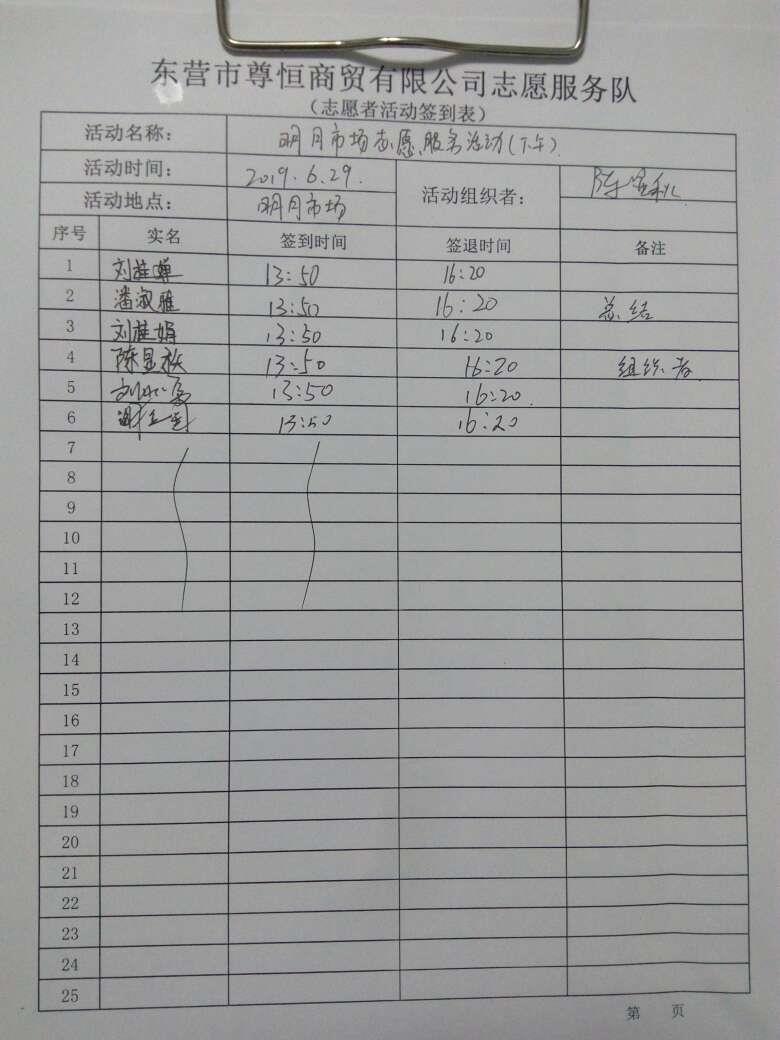 东营市尊恒商贸有限公司志愿服务队
(志愿者活动签到表)
活动名称: 明月市场志愿服务活动(下午)
活动时间: 2019.6.29. 活动组织者:
活动地点: 明月市场
序号 实名 签到时间 签退时间 备注
1 刘桂婵 13:50 16:20
2 潘淑雅 13:50 16:20 总结
3 刘桂娟 13:50 16:20
4 13:50 16:20 组织者
5 13:50 16:20
6 13:50 16:20
7
8
9
10
11
12
13
14
15
16
17
18
19
20
21
22
23
24
25
第 页